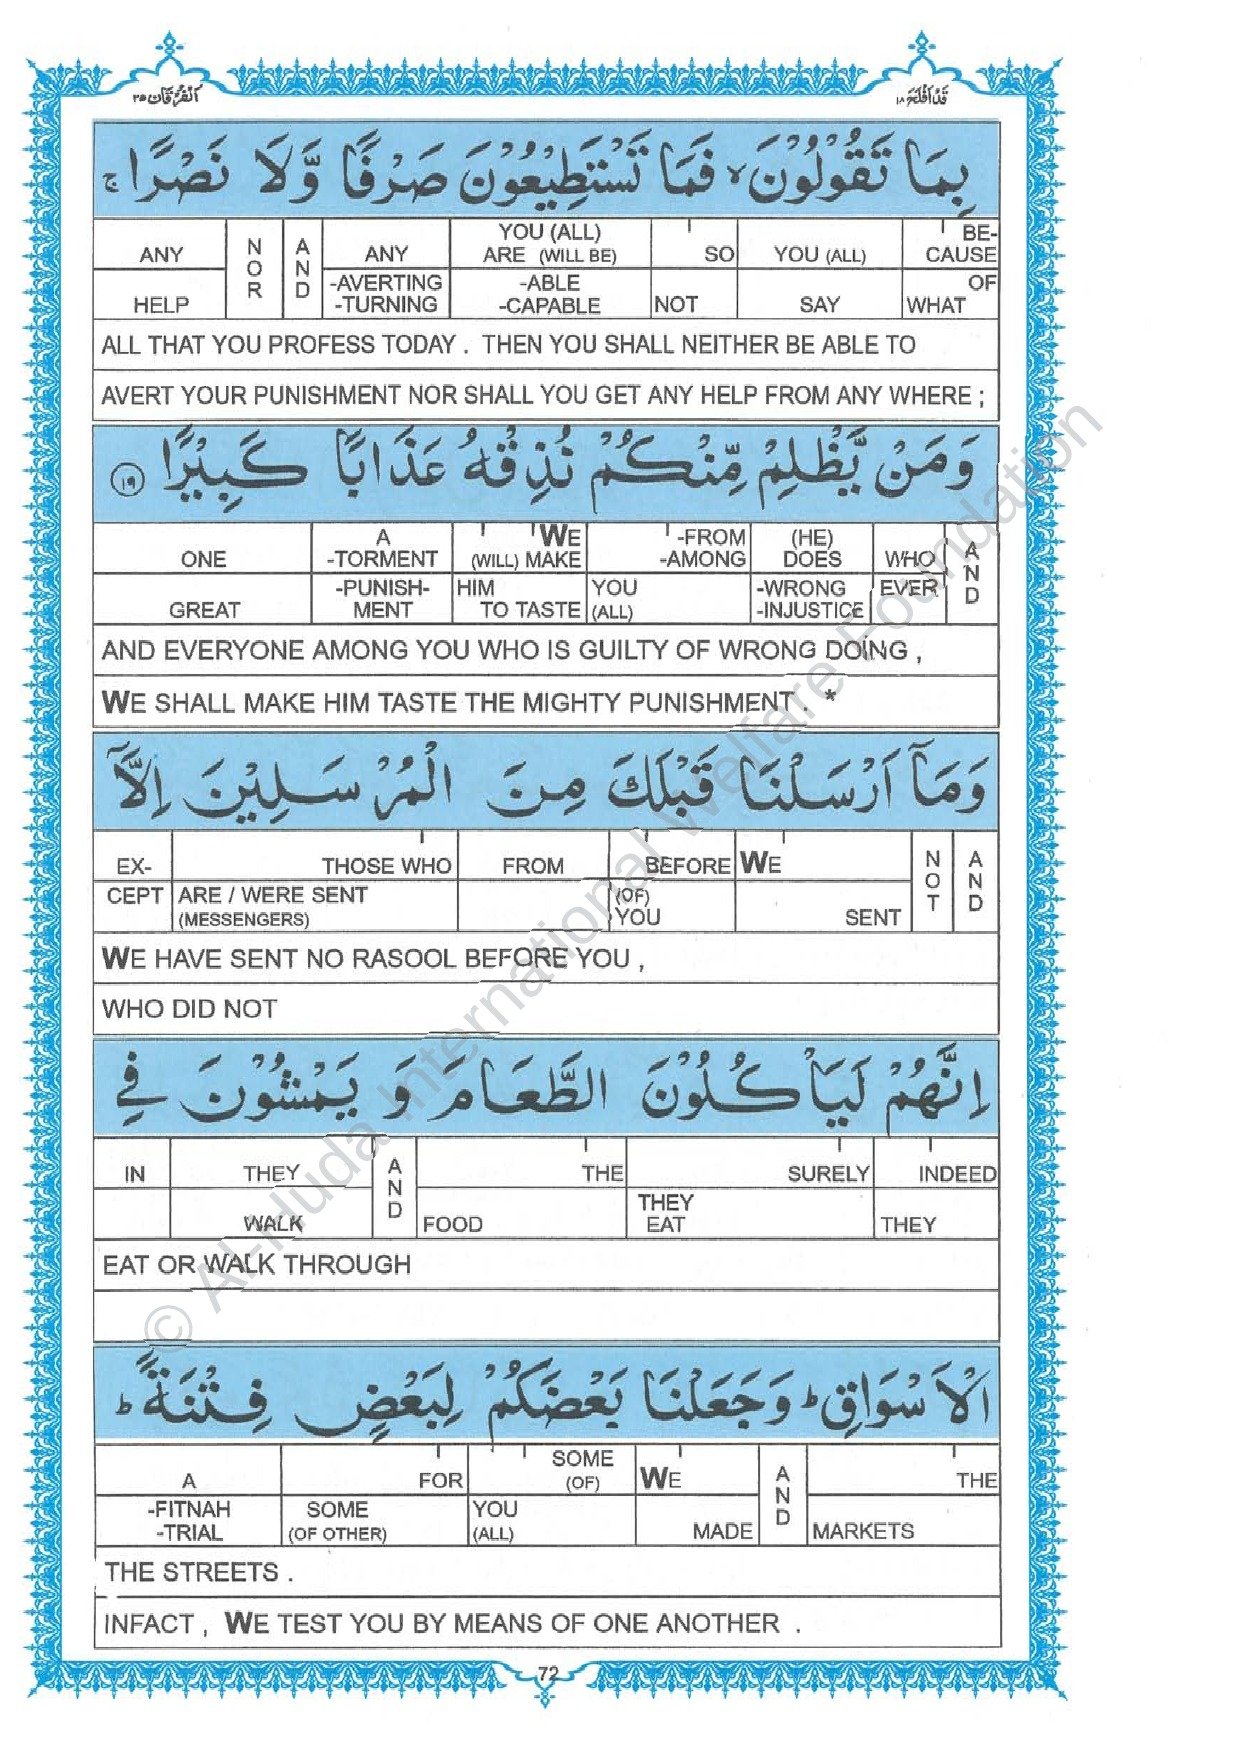 الفرقان ٢٥
قد افلح ١٨
بِمَا تَقُوْلُوْنَ ۙ فَمَا تَسْتَطِيْعُوْنَ صَرْفًا وَّلَا نَصْرًا ۚ
ANY NOR AND ANY YOU (ALL) ARE (WILL BE) SO YOU (ALL) BE-CAUSE
HELP -AVERTING -TURNING -ABLE -CAPABLE NOT SAY OF WHAT
ALL THAT YOU PROFESS TODAY . THEN YOU SHALL NEITHER BE ABLE TO
AVERT YOUR PUNISHMENT NOR SHALL YOU GET ANY HELP FROM ANY WHERE ;
وَمَنْ يَّظْلِمْ مِّنْكُمْ نُذِقْهُ عَذَابًا كَبِيْرًا ١٩
ONE A -TORMENT WE (WILL) MAKE -FROM -AMONG (HE) DOES WHO AND
GREAT -PUNISH-MENT HIM TO TASTE YOU (ALL) -WRONG -INJUSTICE EVER
AND EVERYONE AMONG YOU WHO IS GUILTY OF WRONG DOING ,
WE SHALL MAKE HIM TASTE THE MIGHTY PUNISHMENT . *
وَمَآ اَرْسَلْنَا قَبْلَكَ مِنَ الْمُرْسَلِيْنَ اِلَّآ
EX- THOSE WHO FROM BEFORE WE NOT AND
CEPT ARE / WERE SENT (MESSENGERS) (OF) YOU SENT
WE HAVE SENT NO RASOOL BEFORE YOU ,
WHO DID NOT
اِنَّهُمْ لَيَاْكُلُوْنَ الطَّعَامَ وَ يَمْشُوْنَ فِي
IN THEY AND THE SURELY INDEED
WALK FOOD THEY EAT THEY
EAT OR WALK THROUGH
الْاَسْوَاقِ ؕ وَجَعَلْنَا بَعْضَكُمْ لِبَعْضٍ فِتْنَةً ؕ
A FOR SOME (OF) WE AND THE
-FITNAH -TRIAL SOME (OF OTHER) YOU (ALL) MADE MARKETS
THE STREETS .
INFACT , WE TEST YOU BY MEANS OF ONE ANOTHER .
72
© Al-Huda International Welfare Foundation